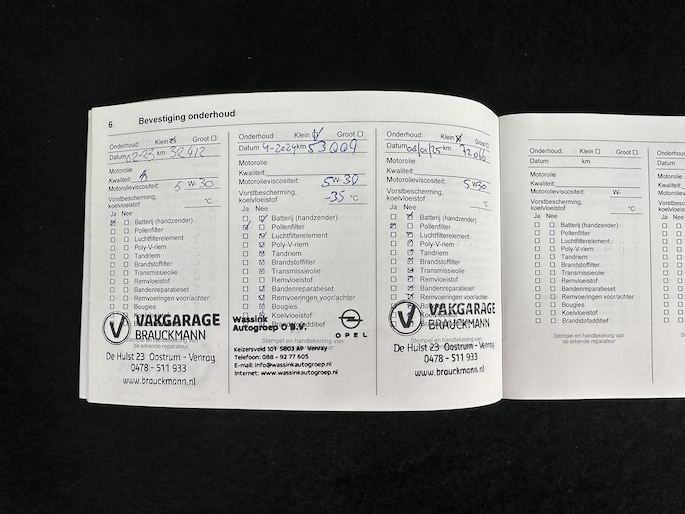 6 Bevestiging onderhoud
Onderhoud: Klein Groot
Datum 02-23 km 32412
Motorolie
Kwaliteit:
Motorolieviscositeit: 5 W-30
Vorstbescherming,
koelvloeistof °C
Ja Nee
Batterij (handzender)
Pollenfilter
Luchtfilterelement
Poly-V-riem
Tandriem
Brandstoffilter
Transmissieolie
Remvloeistof
Bandenreparatieset
Remvoeringen voor/achter
Bougies
VAKGARAGE
BRAUCKMANN
Stempel en handtekening van
de erkende reparateur
De Hulst 23 Oostrum - Venray
0478 - 511 933
www.brauckmann.nl
Onderhoud: Klein Groot
Datum 4-2024 km 53009
Motorolie
Kwaliteit:
Motorolieviscositeit: 5W-30
Vorstbescherming,
koelvloeistof -35 °C
Ja Nee
Batterij (handzender)
Pollenfilter
Luchtfilterelement
Poly-V-riem
Tandriem
Brandstoffilter
Transmissieolie
Remvloeistof
Bandenreparatieset
Remvoeringen voor/achter
Bougies
Koelvloeistof
Brandstofadditief
Wassink
Autogroep O B.V.
OPEL
Stempel en handtekening van
Keizersveld 101 5803 AP Venray
Telefoon: 088 - 92 77 605
E-mail: info@wassinkautogroep.nl
Internet: www.wassinkautogroep.nl
Onderhoud: Klein Groot
Datum km
Motorolie
Kwaliteit:
Motorolieviscositeit: 5W30
Vorstbescherming,
koelvloeistof °C
Ja Nee
Batterij (handzender)
Pollenfilter
Luchtfilterelement
Poly-V-riem
Tandriem
Brandstoffilter
Transmissieolie
Remvloeistof
Bandenreparatieset
Remvoeringen voor/achter
Bougies
VAKGARAGE
BRAUCKMANN
Stempel en handtekening van
De Hulst 23 Oostrum - Venray
0478 - 511 933
www.brauckmann.nl
Onderhoud: Klein Groot
Datum km
Motorolie
Kwaliteit:
Motorolieviscositeit: W-
Vorstbescherming,
koelvloeistof °C
Ja Nee
Batterij (handzender)
Pollenfilter
Luchtfilterelement
Poly-V-riem
Tandriem
Brandstoffilter
Transmissieolie
Remvloeistof
Bandenreparatieset
Remvoeringen voor/achter
Bougies
Koelvloeistof
Brandstofadditief
Stempel en handtekening van
de erkende reparateur
Datum
Motorolie
Kwaliteit:
Ja Nee